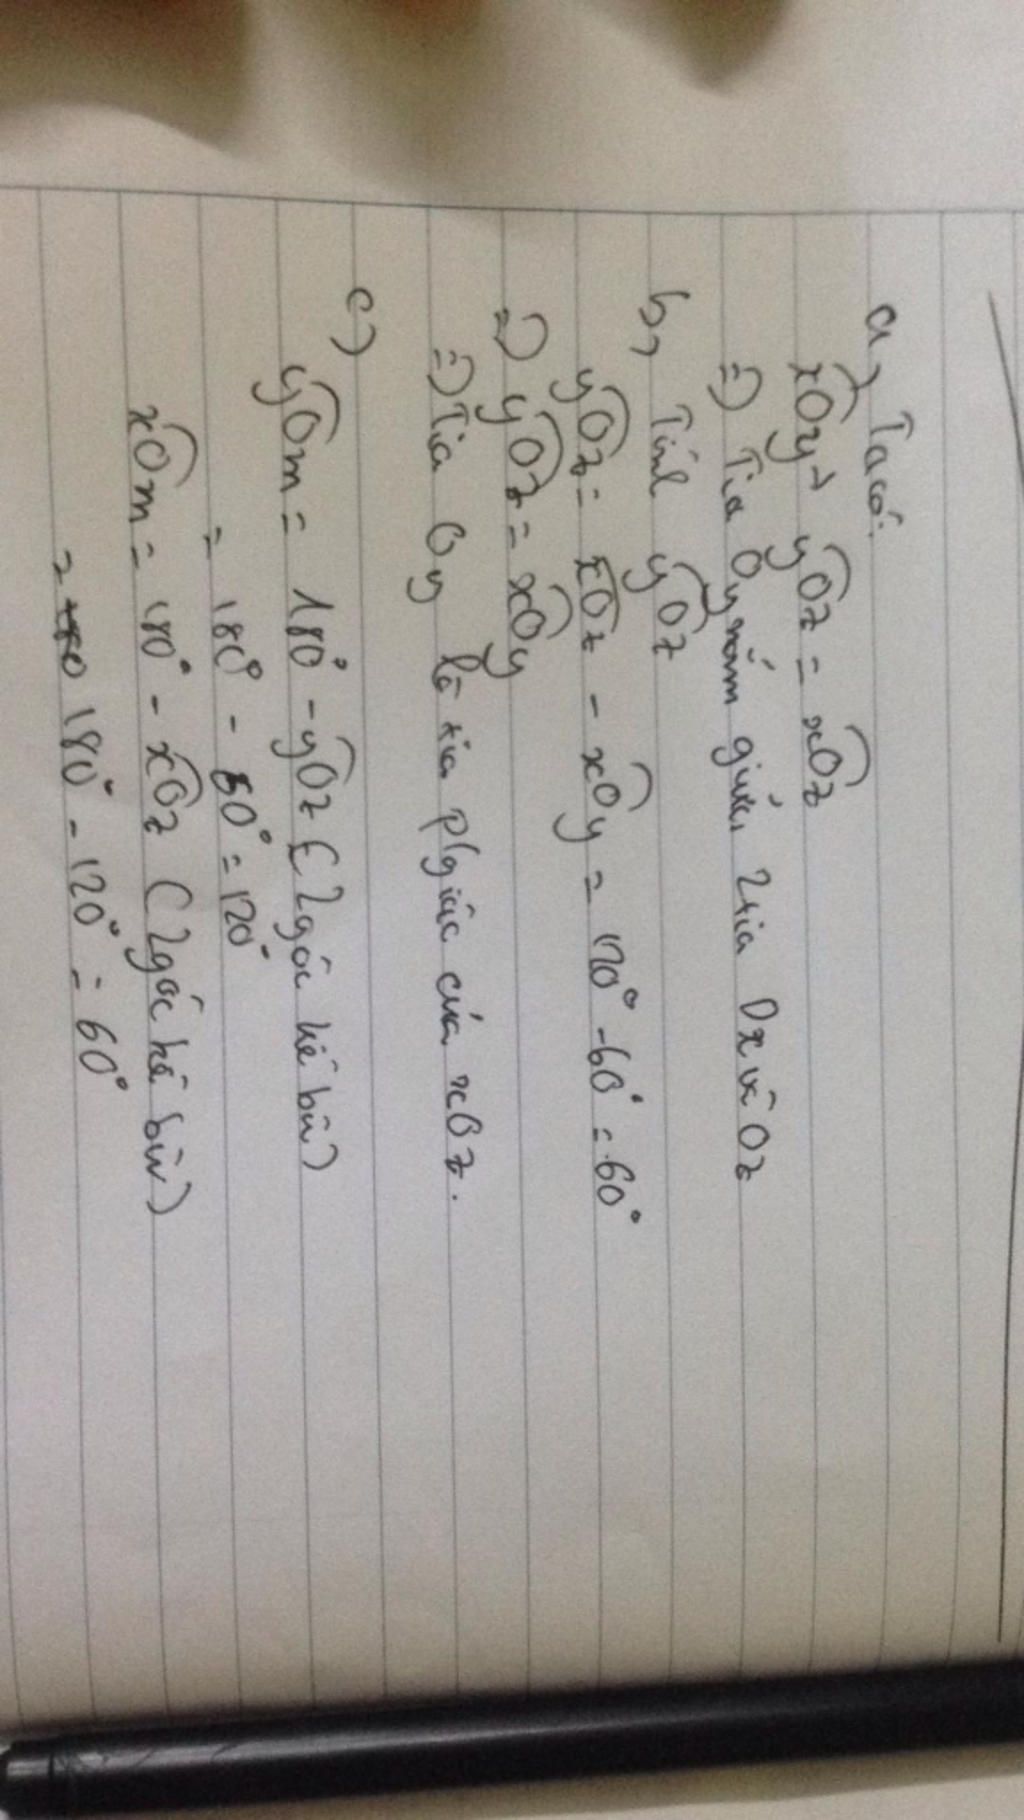 a, Ta có:
xOy + yOz = xOz
=) Tia Oy nằm giữa 2 tia Ox và Oz
b, Tính yOz
yOz = xOz - xOy = 120° - 60° = 60°
=) yOz = xOy
=) Tia Oy là tia p/giác của xOz.
c)
yOm = 180° - yOz ( 2 góc kề bù)
= 180° - 60° = 120°
xOm = 180° - xOz ( 2 góc kề bù)
= 180° - 120° = 60°